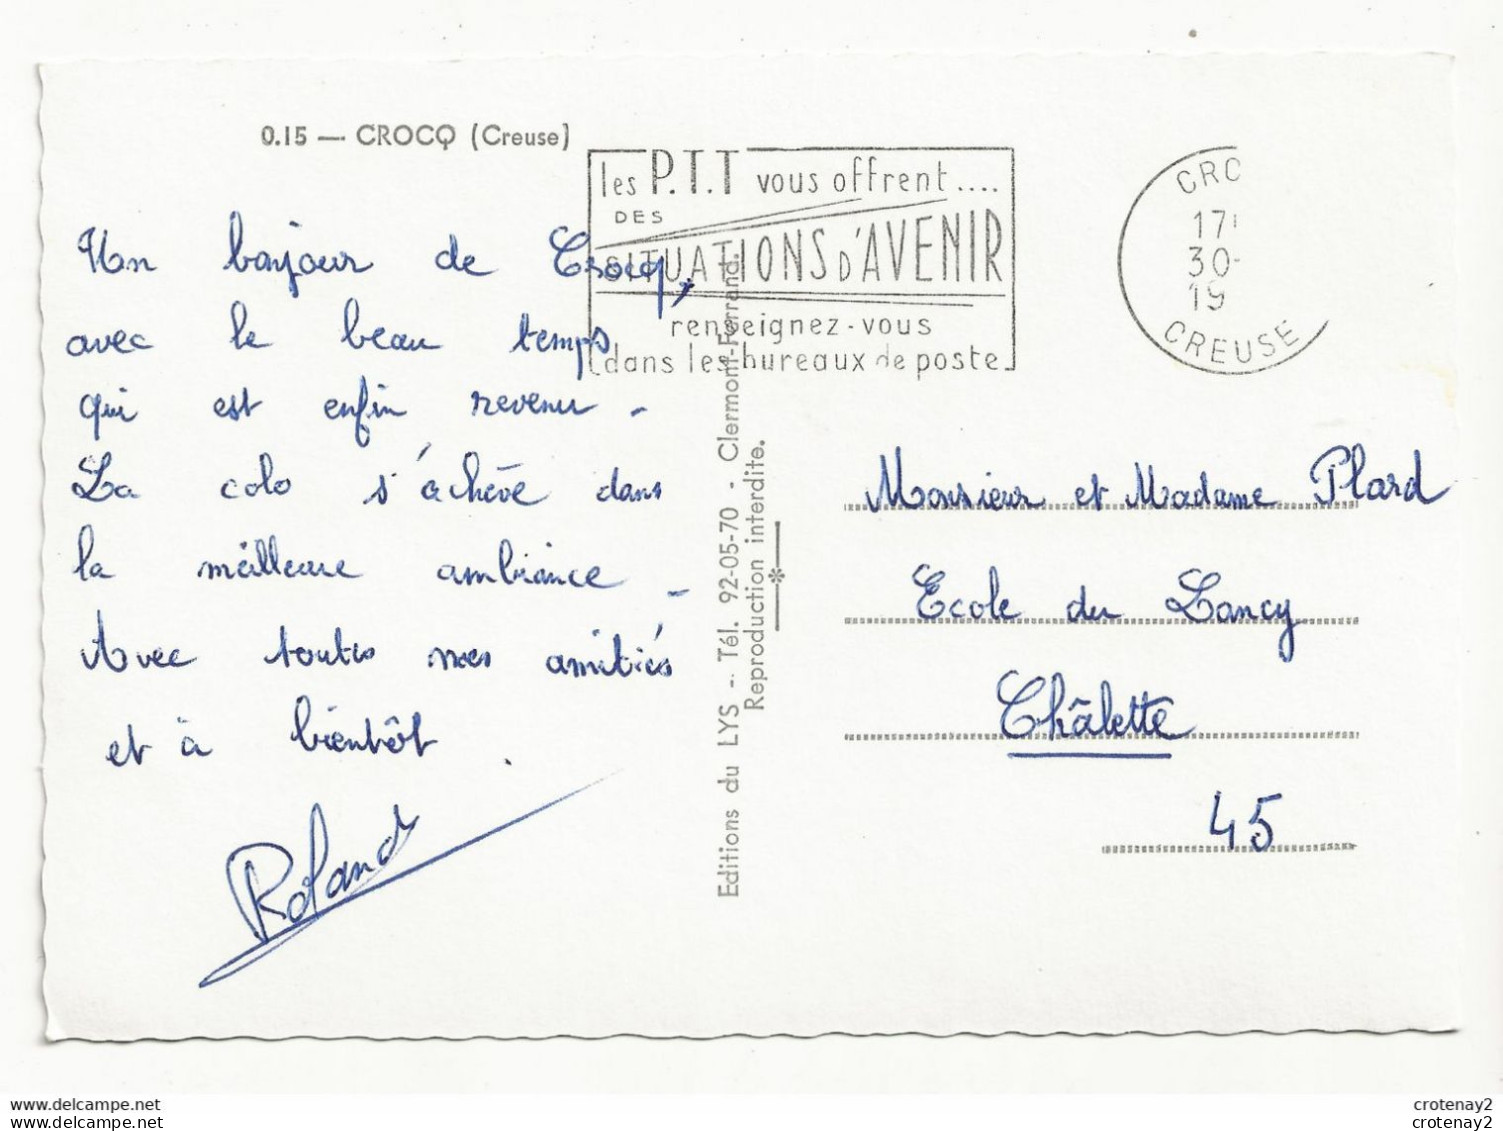 0.15 — CROCQ (Creuse)
les P.T.T vous offrent....
DES
SITUATIONS D'AVENIR
renseignez-vous
dans les bureaux de poste
CRO
17
30-
19
CREUSE
Un bonjour de Crocq,
avec le beau temps
qui est enfin revenu -
La colo s'achève dans
la meilleure ambiance -
Avec toutes nos amitiés
et à bientôt.
Roland
Editions du LYS - Tél. 92-05-70 - Clermont-Ferrand.
Reproduction interdite.
Monsieur et Madame Plard
Ecole du Lancy
Châlette
45
www.delcampe.net
crotenay2
crotenay2
crotenay2
crotenay2